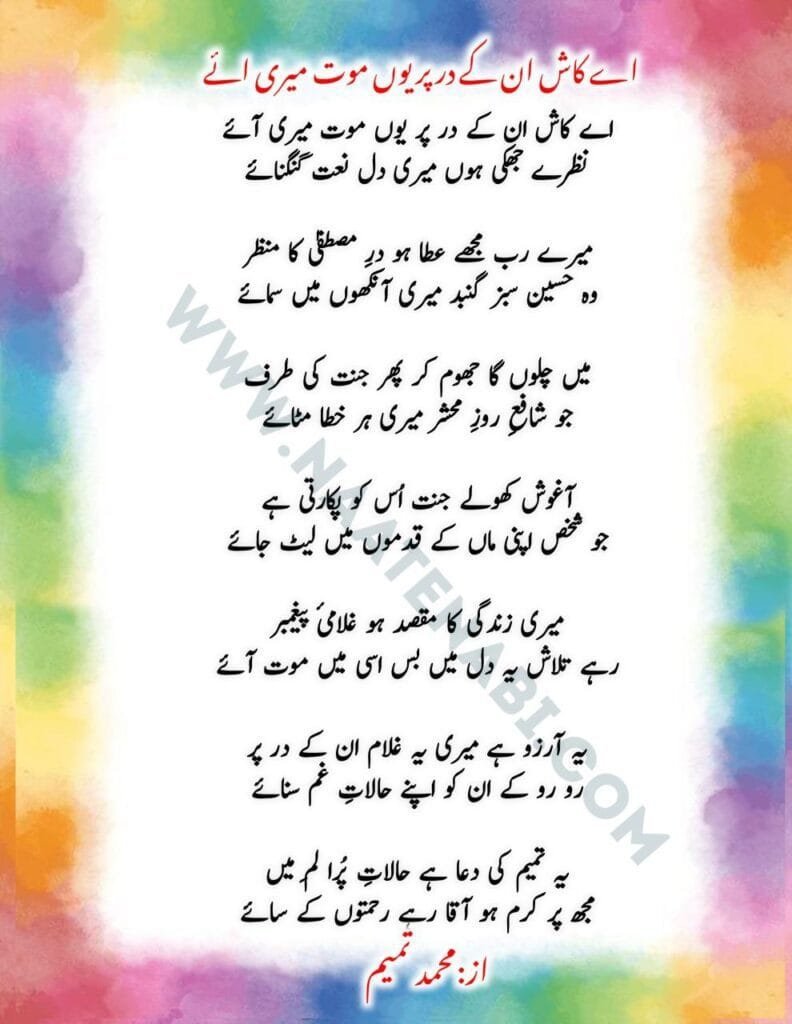 اے کاش ان کے در پر یوں موت میری ائے
اے کاش ان کے در پر یوں موت میری آئے
نظرے جھکی ہوں میری دل نعت گنگنائے
میرے رب مجھے عطا ہو درِ مصطفیٰ کا منظر
وہ حسین سبز گنبد میری آنکھوں میں سمائے
میں چلوں گا جھوم کر پھر جنت کی طرف
جو شافعِ روزِ محشر میری ہر خطا مٹائے
آغوش کھولے جنت اُس کو پکارتی ہے
جو شخص اپنی ماں کے قدموں میں لیٹ جائے
میری زندگی کا مقصد ہو غلامیٔ پیغمبر
رہے تلاش یہ دل میں بس اسی میں موت آئے
یہ آرزو ہے میری یہ غلام ان کے در پر
رو رو کے ان کو اپنے حالاتِ غم سنائے
یہ تمیم کی دعا ہے حالاتِ پُرا لم میں
مجھ پر کرم ہو آقا رہے رحمتوں کے سائے
از: محمد تمیم
WWW.NAATENABI.COM